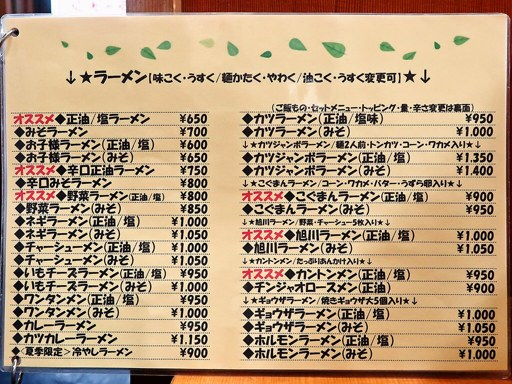 ↓★ラーメン【味こく・うすく/麺かたく・やわく/油こく・うすく変更可】★↓
オススメ◆正油/塩ラーメン ¥650
◆みそラーメン ¥700
◆お子様ラーメン(正油/塩) ¥600
◆お子様ラーメン(みそ) ¥650
オススメ◆辛口正油ラーメン ¥750
◆辛口みそラーメン ¥800
オススメ◆野菜ラーメン(正油/塩) ¥800
◆野菜ラーメン(みそ) ¥850
◆ネギラーメン(正油/塩) ¥1.000
◆ネギラーメン(みそ) ¥1.050
◆チャーシューメン(正油/塩) ¥1.000
◆チャーシューメン(みそ) ¥1.050
◆いもチーズラーメン(正油/塩) ¥950
◆いもチーズラーメン(みそ) ¥1.000
◆ワンタンメン(正油/塩) ¥950
◆ワンタンメン(みそ) ¥1.000
◆カレーラーメン ¥950
◆カツカレーラーメン ¥1.150
◆<夏季限定>冷やしラーメン ¥900
(ご飯もの・セットメニュー・トッピング・量・辛さ変更は裏面)
◆カツラーメン(正油/塩味) ¥950
◆カツラーメン(みそ) ¥1.000
↓★カツジャンボラーメン/麺2人前・トンカツ・コーン・ワカメ入り★↓
◆カツジャンボラーメン(正油/塩) ¥1.350
◆カツジャンボラーメン(みそ) ¥1.400
↓★こぐまんラーメン/コーン・ワカメ・バター・うずら卵入り★↓
オススメ◆こぐまんラーメン(正油/塩) ¥900
◆こぐまんラーメン(みそ) ¥950
↓★旭川ラーメン/野菜・チャーシュー5枚入り★↓
オススメ◆旭川ラーメン(正油/塩) ¥1.000
◆旭川ラーメン(みそ) ¥1.050
↓★カントンメン/たっぷりあんかけ入り★↓
オススメ◆カントンメン(正油/塩) ¥950
◆チンジャオロースメン(正油) ¥900
↓★ギョウザラーメン/焼きギョウザ大5個入り★↓
◆ギョウザラーメン(正油/塩) ¥1.000
◆ギョウザラーメン(みそ) ¥1.050
◆ホルモンラーメン(正油/塩) ¥950
◆ホルモンラーメン(みそ) ¥1.000